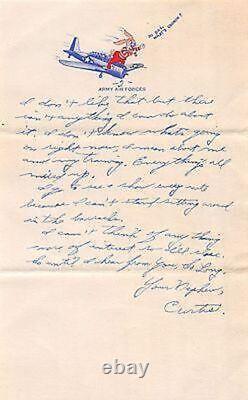 ARMY AIR FORCES
I don't like that but there
isn't anything I can do about
it. I don't know what's going
on right now, I mean about me
and my training. Everything's all
mixed up.
I go to see a show every nite
because I can't start sitting around
in the barracks.
I can't think of any thing
more of interest to tell you.
So until I hear from you, So Long.
Your Nephew,
Curtis.
© worthpoint.com